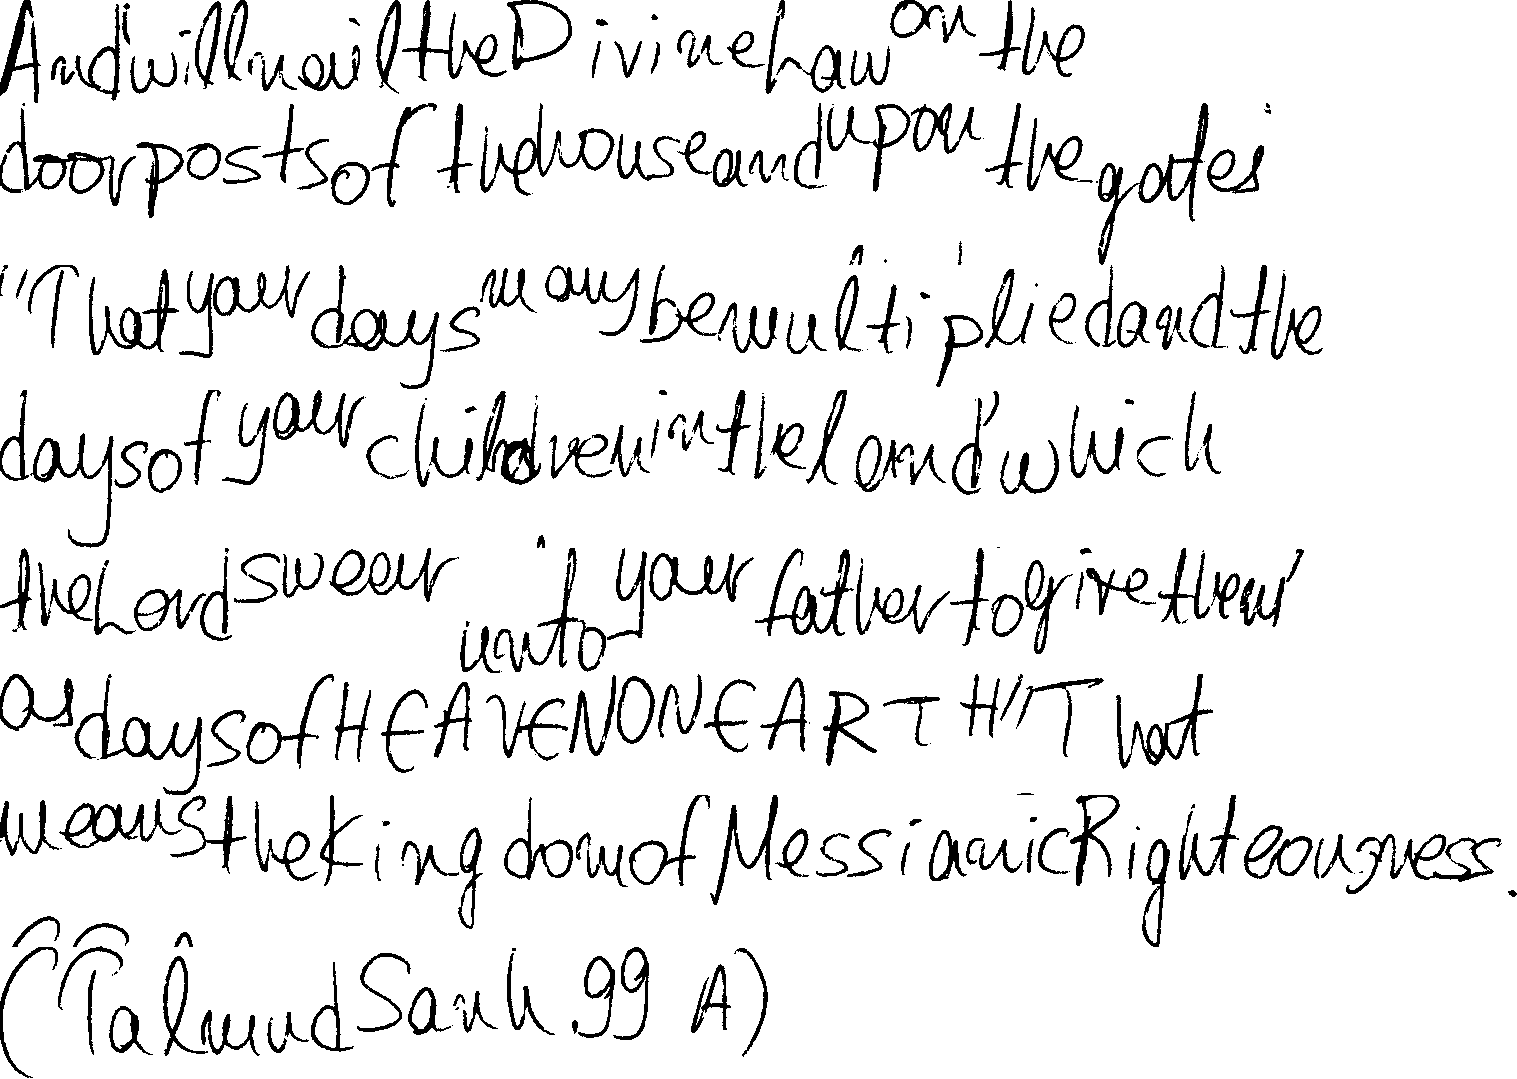 And will nail the Divine Law on the
doorposts of the house and upon the gates
"That your days may be multiplied and the
days of your children in the land which
the Lord swear unto your father to give them
as days of HEAVEN ON EARTH" That
means the Kingdom of Messianic Righteousness.
(Talmud Sanh. 99 A)